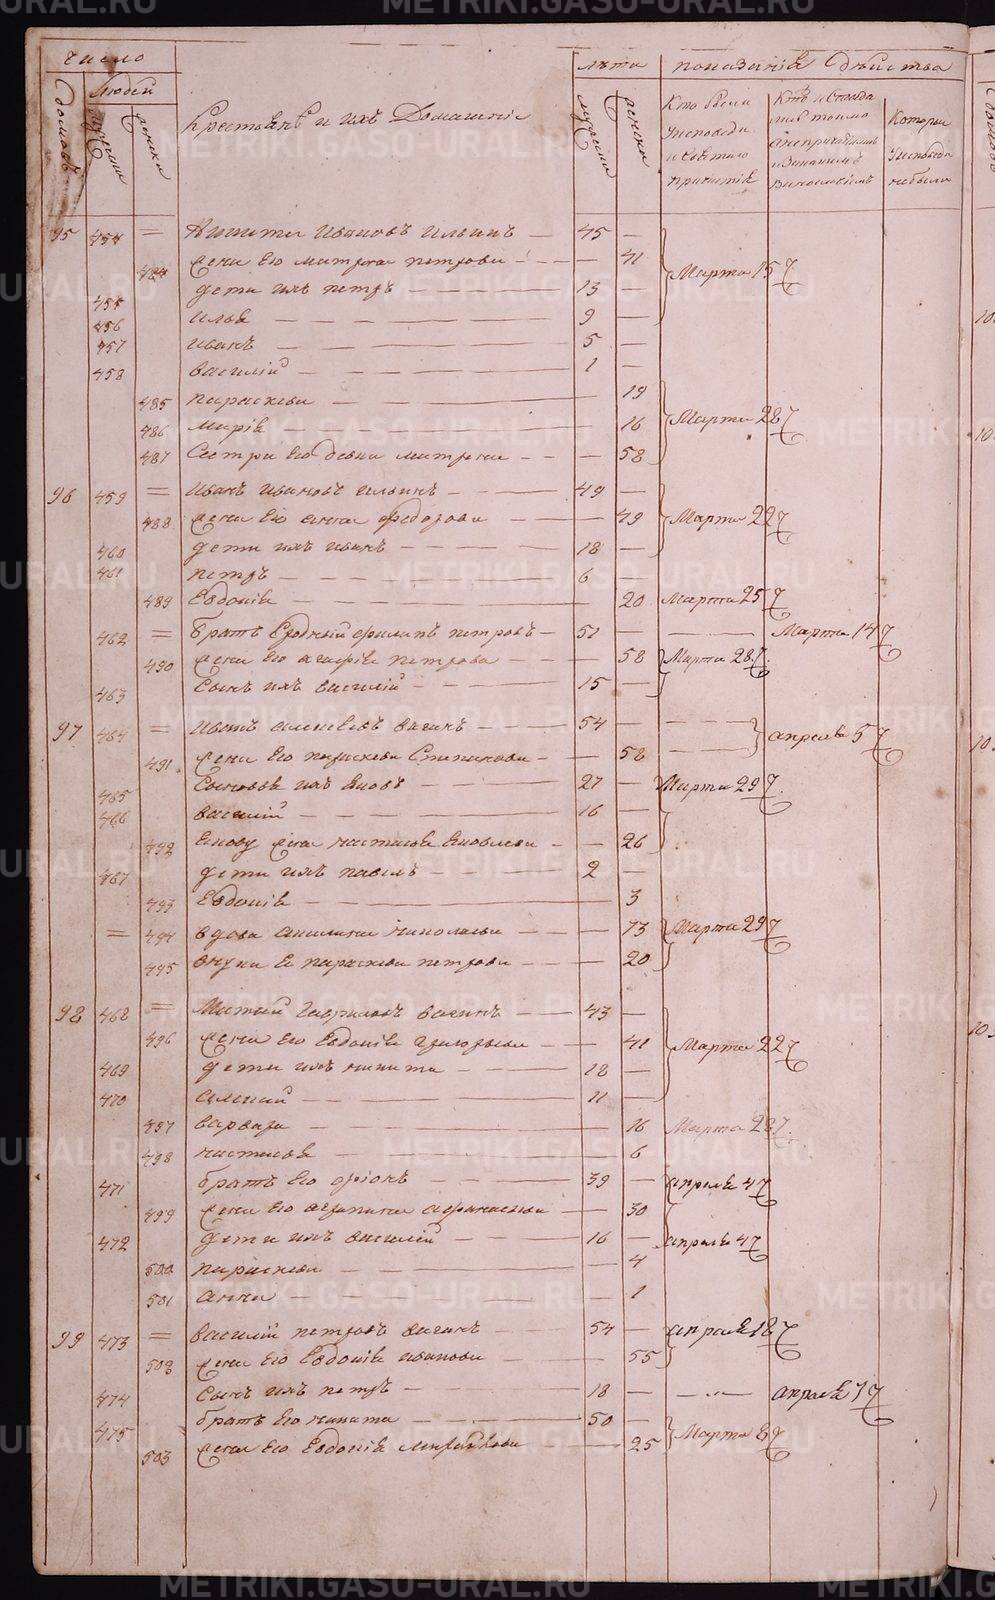 число
лѣта показаніе дѣйства
домовъ
людей
мужеска
женска
Крестьянѣ и ихъ Домашніе
мужеска
женска
Кто были у исповеди и святаго причастія
Которыи у исповеди небыли
95 454 = Никита Ивановъ Ильинъ — 45 —
484 жена Его Матрона Петрова — — 41 Марта 15
455 дети ихъ Петръ — 13 —
456 Илья — 9 —
457 Иванъ — 5 —
458 Василій — 1 —
485 Параскева — 19
486 Марія — 16 Марта 28
487 Сестра Его девка Матрона — — 58
96 459 = Иванъ Ивановъ Ильинъ — 49 —
488 жена Его Анна Федорова — 49 Марта 22
460 дети ихъ Иванъ — 18 —
461 Петръ — 6 —
489 Евдокія — 20 Марта 25
462 = братъ Сродный Филипъ Петровъ — 51 — Марта 14
490 жена Его Агафія Петрова — — 58 Марта 28
463 Сынъ ихъ Василій — 15 —
97 464 = Иванъ Алексѣевъ Вагинъ — 54 — Апреля 5
491 жена Его Параскева Степанова — — 58
465 Сыновья ихъ Яковъ — 27 — Марта 29
466 Василій — 16
492 Якову жена Настасья Яковлева — — 26
467 дети ихъ Павелъ — 2 —
493 Евдокія — 3
= 494 вдова Акилина Николаева — — 73 Марта 29
495 внука Ея Параскева Петрова — — 20
98 468 = Матвей Гавриловъ Вагинъ — 43 —
496 жена Его Евдокія Григорьева — — 41 Марта 22
469 дети ихъ Никита — 18 —
470 Алексий — 11 —
497 Варвара — 16 Марта 28
498 Настасья — 6
471 братъ Его Фіокъ — 39 — Апреля 4
499 жена Его Агрипина Афонасьева — 30
472 дети ихъ Василій — 16 — Апреля 4
500 Параскева — 4
501 Анна — 1
99 473 = Василій Петровъ Вагинъ — 54 — Апреля 18
502 жена Его Евдокія Иванова — — 55
474 Сынъ ихъ Петръ — 18 — Апреля 7
475 братъ Его Никита — 50 —
503 жена Его Евдокія — 25 Марта 8
METRIKI.GASO-URAL.RU